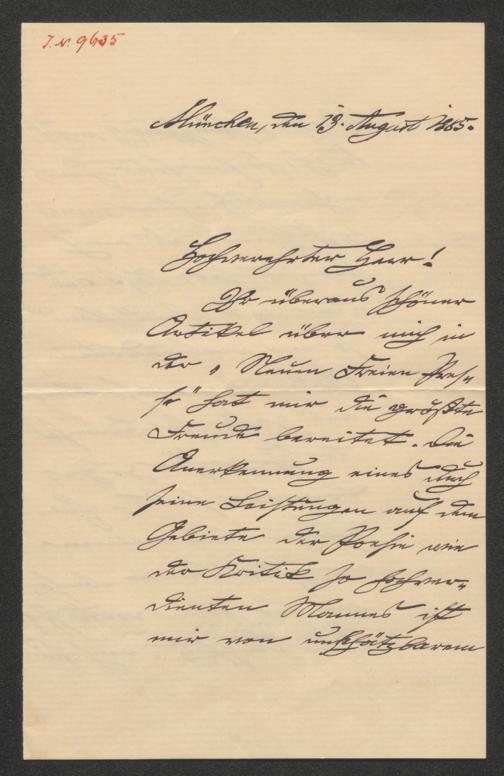 J.N. 9635
München, den 13. August 1885.
Hochverehrter Herr!
Ihr überaus schöner
Artikel über mich in
der „Neuen Freien Pres-
se" hat mir die größte
Freude bereitet. Die
Anerkennung eines durch
seine Leistungen auf dem
Gebiete der Poesie wie
der Kritik so hochver-
dienten Mannes ist
mir von unschätzbarem